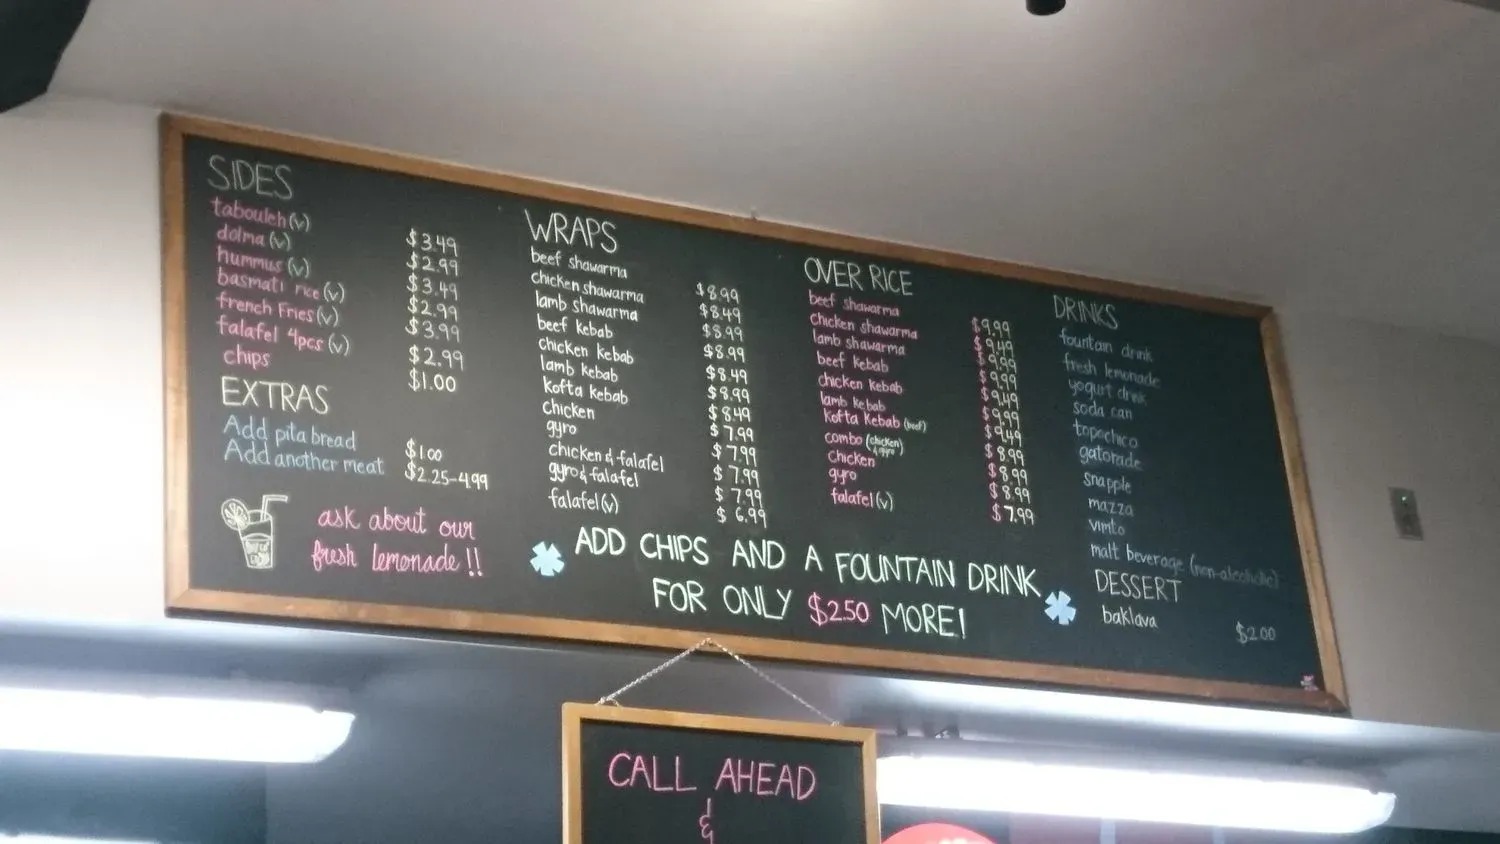 SIDES
tabouleh (v) $3.49
dolma (v) $2.99
hummus (v) $3.49
basmati rice (v) $2.99
french fries (v) $3.99
falafel 4pcs (v) $2.99
chips $1.00
EXTRAS
Add pita bread $1.00
Add another meat $2.25-4.99
ask about our
fresh lemonade!!
WRAPS
beef shawarma $8.99
chicken shawarma $8.49
lamb shawarma $8.99
beef kebab $8.99
chicken kebab $8.49
lamb kebab $8.99
kofta kebab $8.49
chicken $7.99
gyro $7.99
chicken & falafel $7.99
gyro & falafel $7.99
falafel (v) $6.99
OVER RICE
beef shawarma $9.99
chicken shawarma $9.49
lamb shawarma $9.99
beef kebab $9.99
chicken kebab $9.49
lamb kebab $9.99
kofta kebab (beef) $9.49
combo (chicken & gyro) $8.99
chicken $8.99
gyro $8.99
falafel (v) $7.99
DRINKS
fountain drink
fresh lemonade
yogurt drink
soda can
topochico
gatorade
snapple
mazza
vimto
malt beverage (non-alcoholic)
DESSERT
baklava $2.00
ADD CHIPS AND A FOUNTAIN DRINK
FOR ONLY $2.50 MORE!
CALL AHEAD
&